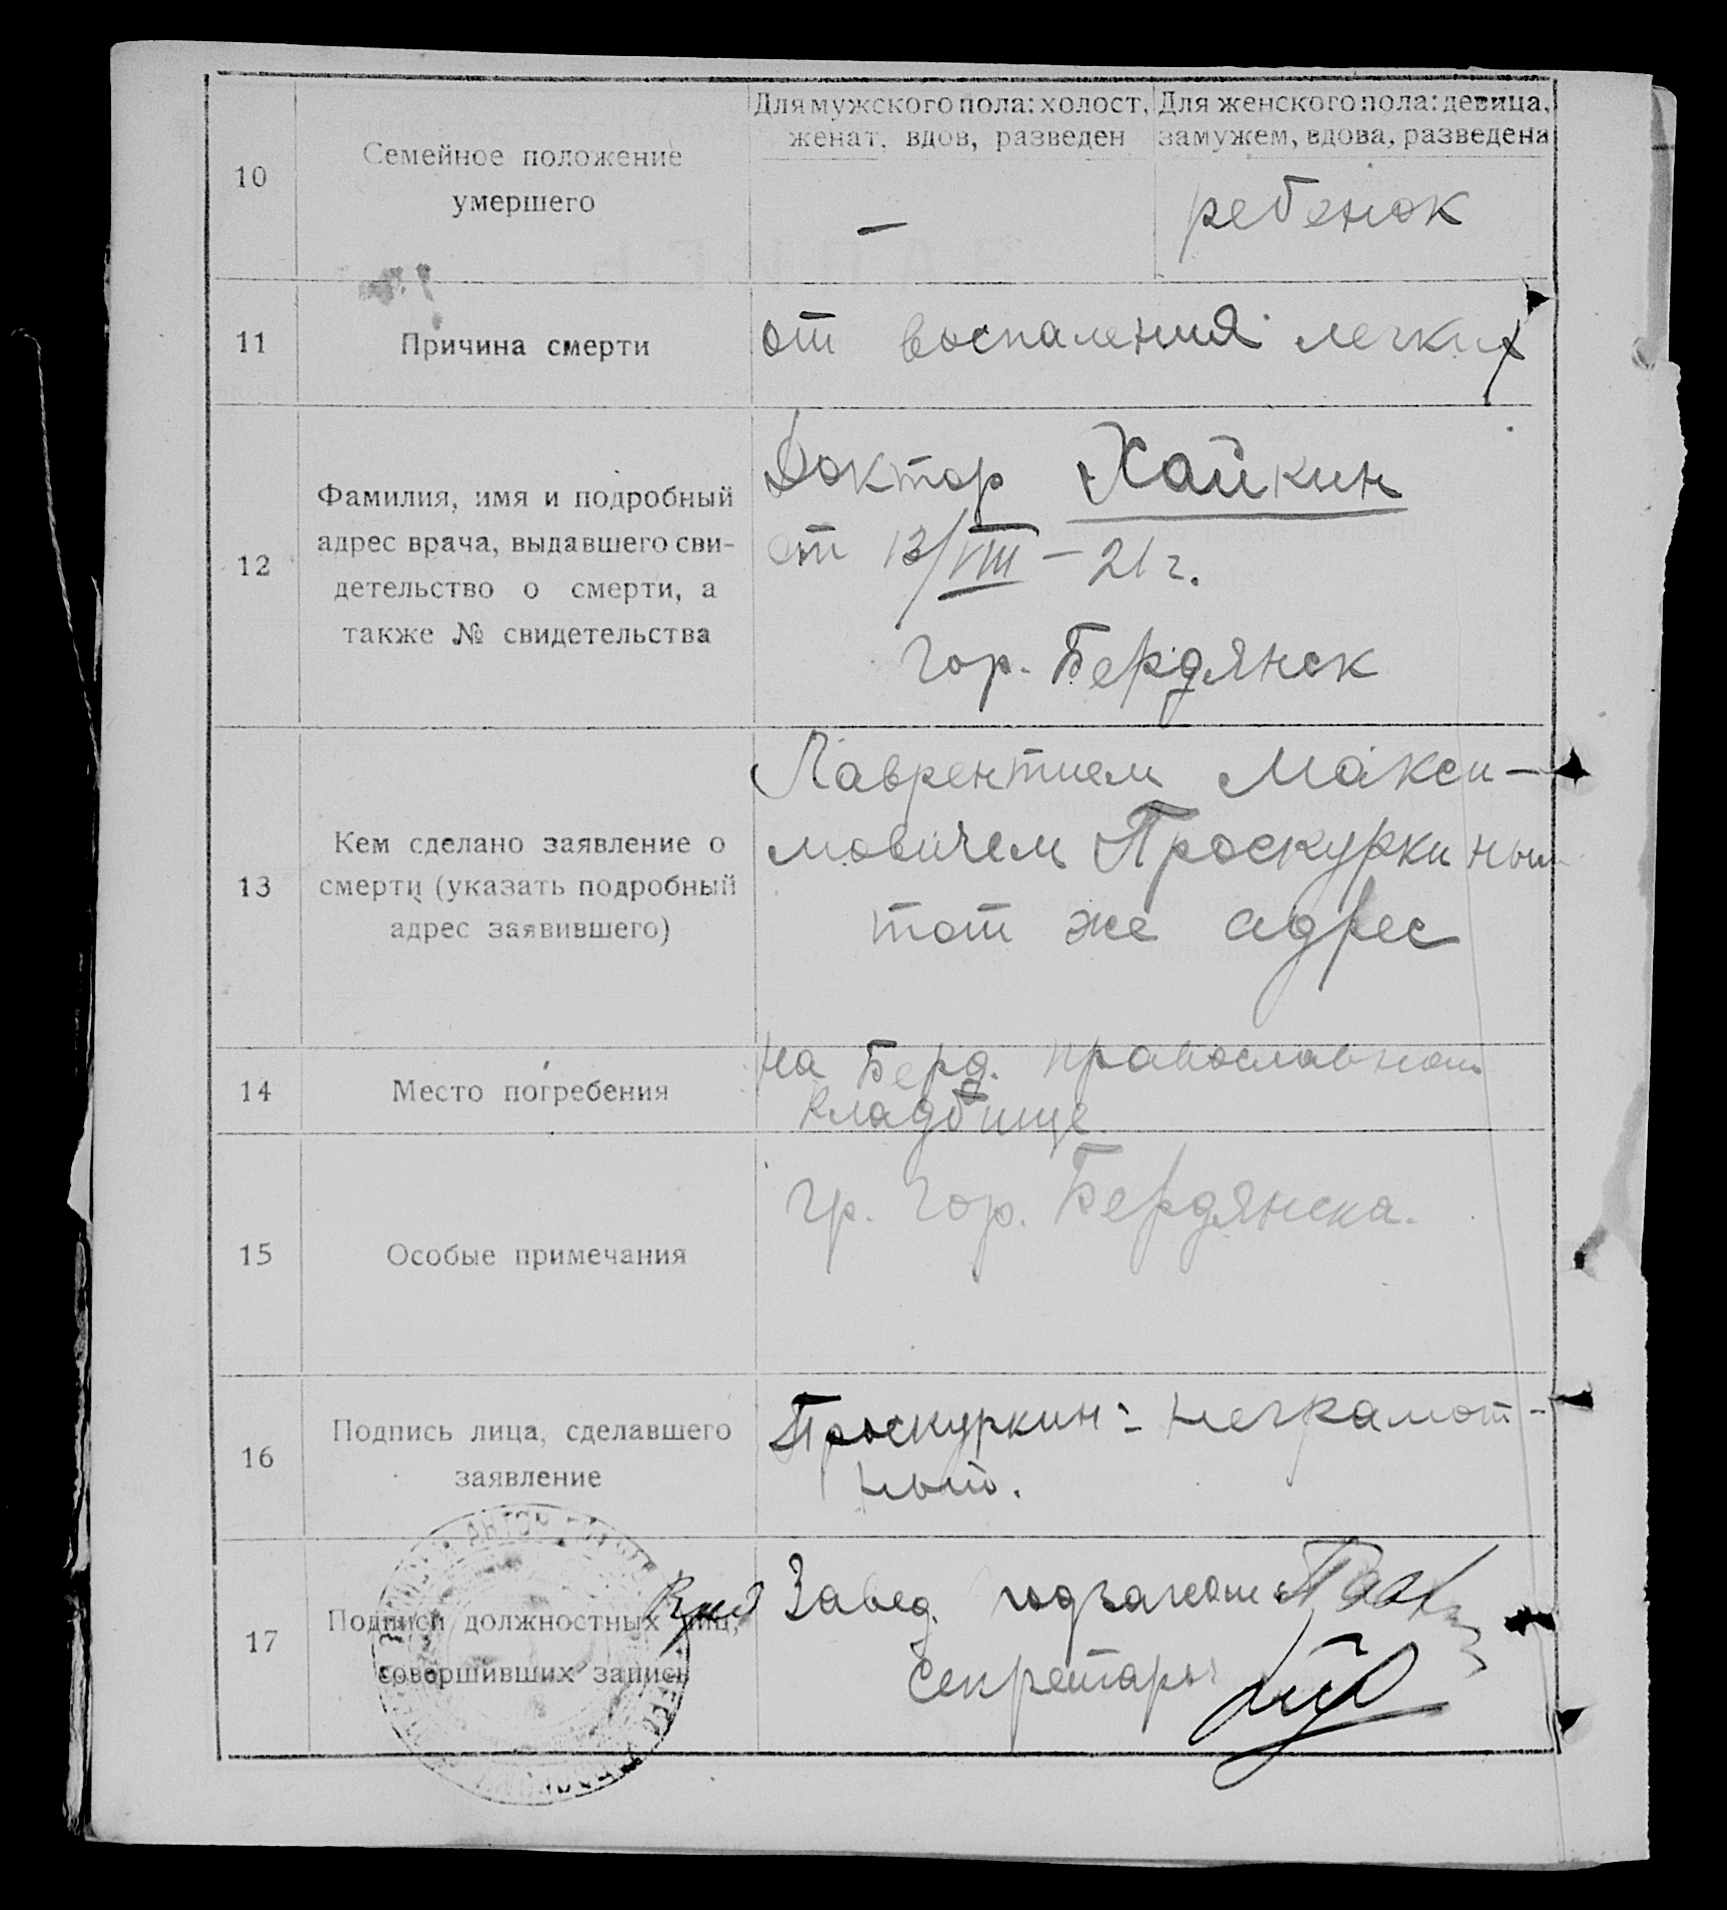 10
Семейное положение
умершего
Для мужского пола: холост,
женат, вдов, разведен
Для женского пола: девица,
замужем, вдова, разведена
—
ребенок
11
Причина смерти
от воспаления легких
12
Фамилия, имя и подробный
адрес врача, выдавшего сви-
детельство о смерти, а
также № свидетельства
Доктор Хайкин
от 13/VIII – 21 г.
гор. Бердянск
13
Кем сделано заявление о
смерти (указать подробный
адрес заявившего)
Лаврентием Макси-
мовичем Проскуркиным
тот же адрес
14
Место погребения
на Берд. православном
кладбище
15
Особые примечания
гр. гор. Бердянска.
16
Подпись лица, сделавшего
заявление
Проскуркин - неграмот-
ный.
17
Подписи должностных лиц,
совершивших запись
Завед. подзагсом
Секретарь